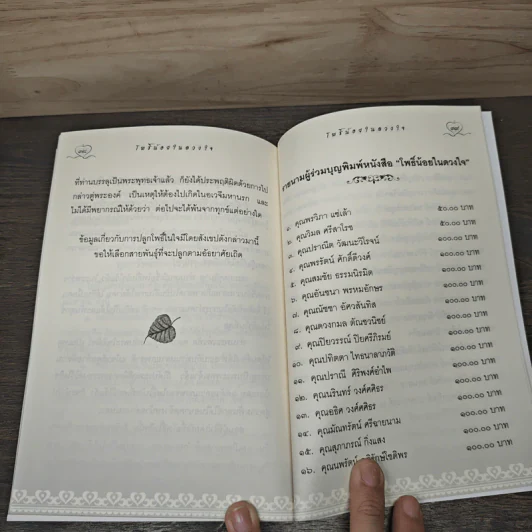 โพธิ์น้อยในดวงใจ
ที่ท่านบรรลุเป็นพระพุทธเจ้าแล้ว ก็ยังได้ประพฤติผิดด้วยการไป
กล่าวตู่พระองค์ เป็นเหตุให้ต้องไปเกิดในอเวจีมหานรก และ
ไม่ได้มีพยากรณ์ให้ด้วยว่า ต่อไปจะได้พ้นจากทุกข์แต่อย่างใด
ข้อมูลเกี่ยวกับการปลูกโพธิ์ในใจมีโดยสังเขปดังกล่าวมานี้
ขอให้เลือกสายพันธุ์ที่จะปลูกตามอัธยาศัยเถิด
โพธิ์น้อยในดวงใจ
รายนามผู้ร่วมบุญพิมพ์หนังสือ "โพธิ์น้อยในดวงใจ"
๑. คุณพรวิภา แซ่เล้า ๕๐.๐๐ บาท
๒. คุณวิมล ศรีสาโรช ๕๐.๐๐ บาท
๓. คุณปราณีต วัฒนะวิโรจน์ ๑๐๐.๐๐ บาท
๔. คุณพรรัตน์ ศักดิ์ลีวงศ์ ๑๐๐.๐๐ บาท
๕. คุณสมชัย ธรรมนิรมิต ๑๐๐.๐๐ บาท
๖. คุณอันชนา พรหมอักษร ๑๐๐.๐๐ บาท
๗. คุณณัชชา อัศวสันทีส ๑๐๐.๐๐ บาท
๘. คุณดวงกมล ตัณชวนิชย์ ๑๐๐.๐๐ บาท
๙. คุณปิยวรรณ์ ปิยศรีภิรมย์ ๑๐๐.๐๐ บาท
๑๐. คุณปทิตตา ไทยนาลาภวัติ ๑๐๐.๐๐ บาท
๑๑. คุณปราณี ศิริพงศ์อำไพ ๑๐๐.๐๐ บาท
๑๒. คุณนรินทร์ วงศ์ศศิธร ๑๐๐.๐๐ บาท
๑๓. คุณอธิศ วงศ์ศศิธร ๑๐๐.๐๐ บาท
๑๔. คุณมัณทรัตน์ ศรีฉายนาม ๑๐๐.๐๐ บาท
๑๕. คุณสุภาภรณ์ กิ่งแสง ๑๐๐.๐๐ บาท
๑๖. คุณนพรัตน์ ๑๐๐.๐๐ บาท